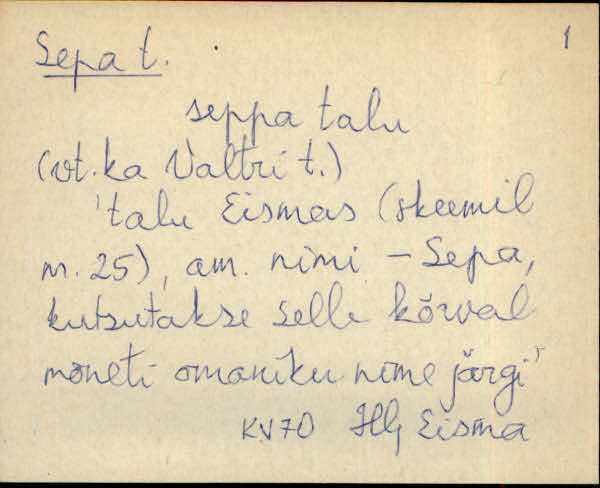 Sepa t.
1
seppa talu
(vt. ka Valtri t.)
'talu Eismas (skeemil
nr. 25), am. nimi – Sepa,
kutsutakse selle kõrval
mõneti omaniku nime järgi'
KV70 Hlj Eisma